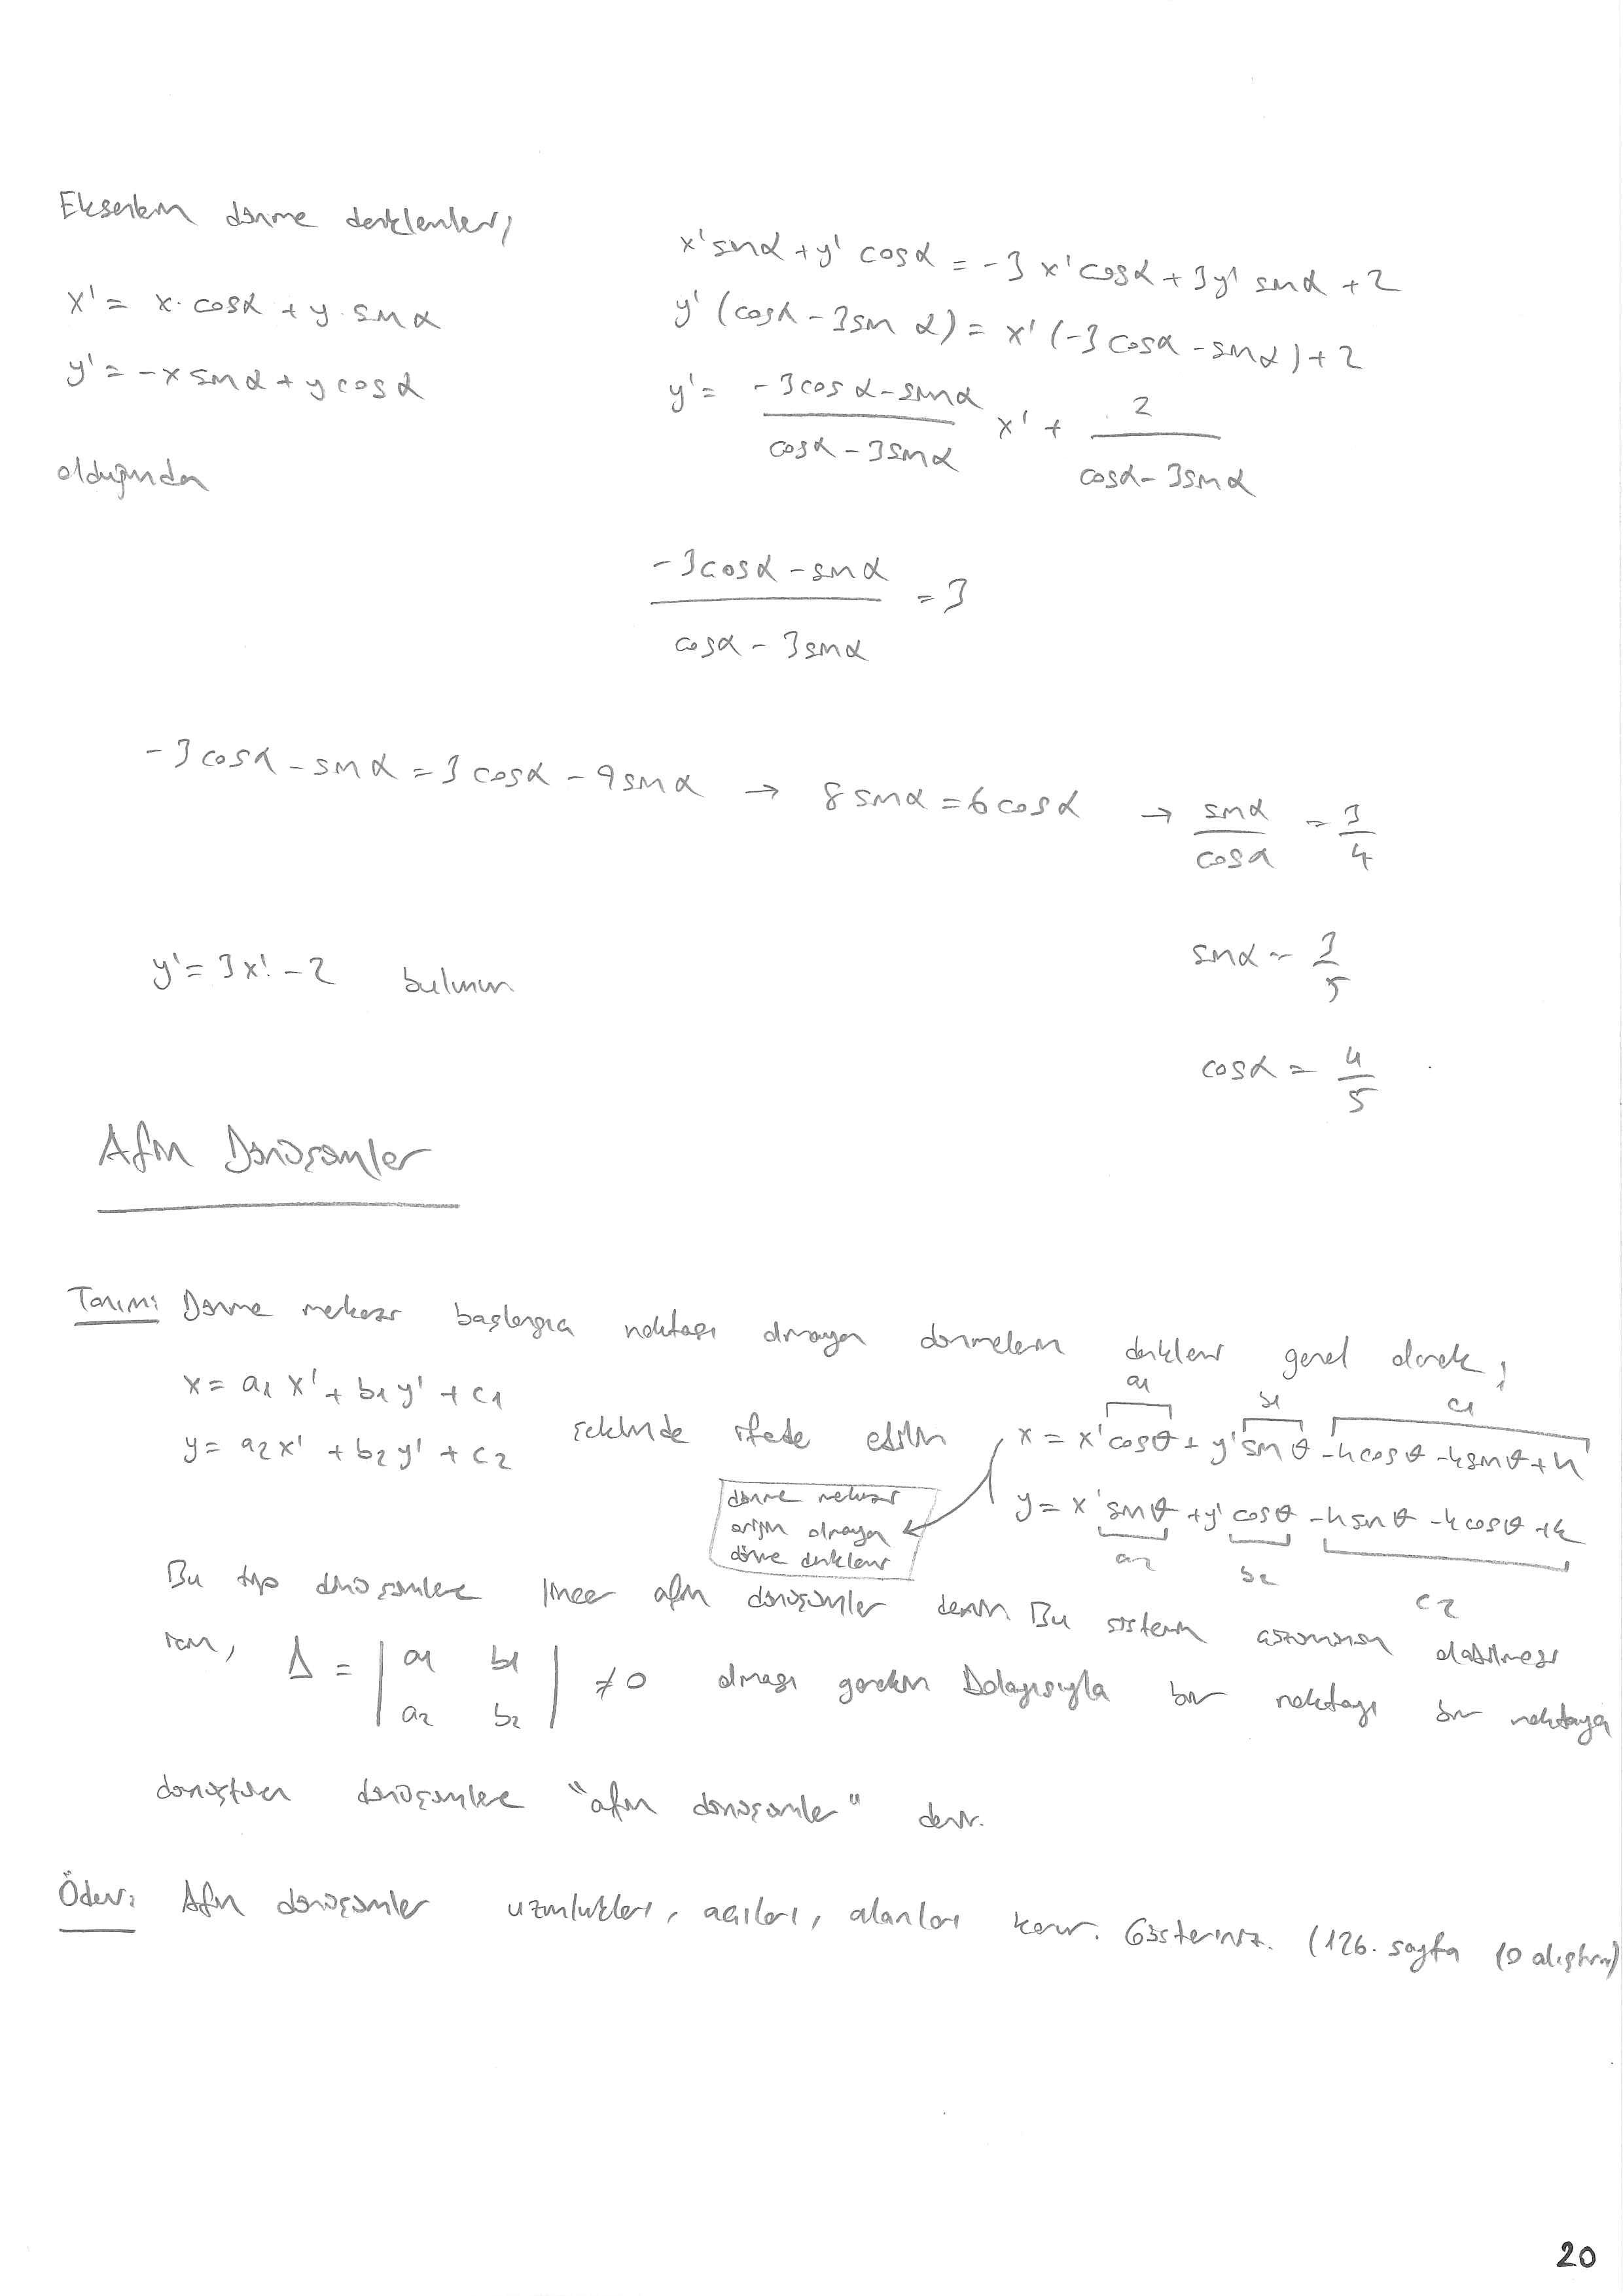 Eksenlerin dönme denklemleri,
x' = x·cosα + y·sinα
y' = -x sinα + y cosα
olduğundan
x' sinα + y' cosα = -3x' cosα + 3y' sinα + 2
y' (cosα - 3sinα) = x' (-3cosα - sinα) + 2
y' = (-3cosα - sinα)/(cosα - 3sinα) x' + 2/(cosα - 3sinα)
(-3cosα - sinα)/(cosα - 3sinα) = 3
-3cosα - sinα = 3cosα - 9sinα → 8sinα = 6cosα → sinα/cosα = 3/4
sinα = 3/5
y' = 3x' - 2 bulunur
cosα = 4/5
Afin Dönüşümler
Tanım: Dönme merkezi başlangıç noktası olmayan dönmelerin denklemi genel olarak;
x = a1 x' + b1 y' + c1
y = a2 x' + b2 y' + c2
şeklinde ifade edilir
a1 b1 c1
x = x' cosθ + y' sinθ -hcosθ -ksinθ + h
y = x' sinθ + y' cosθ -hsinθ -kcosθ + k
a2 b2 c2
dönme merkezi
orijin olmayan
dönme denklemi
Bu tip dönüşümlere lineer afin dönüşümler denir Bu sistemin çözümünün olabilmesi
için, Δ = | a1 b1 | ≠ 0 olması gerekir Dolayısıyla bir noktayı bir noktaya
| a2 b2 |
dönüştüren dönüşümlere "afin dönüşümler" denir.
Ödev: Afin dönüşümler uzunlukları, açıları, alanları korur. Gösteriniz. (126. sayfa 10 alıştırma)
20